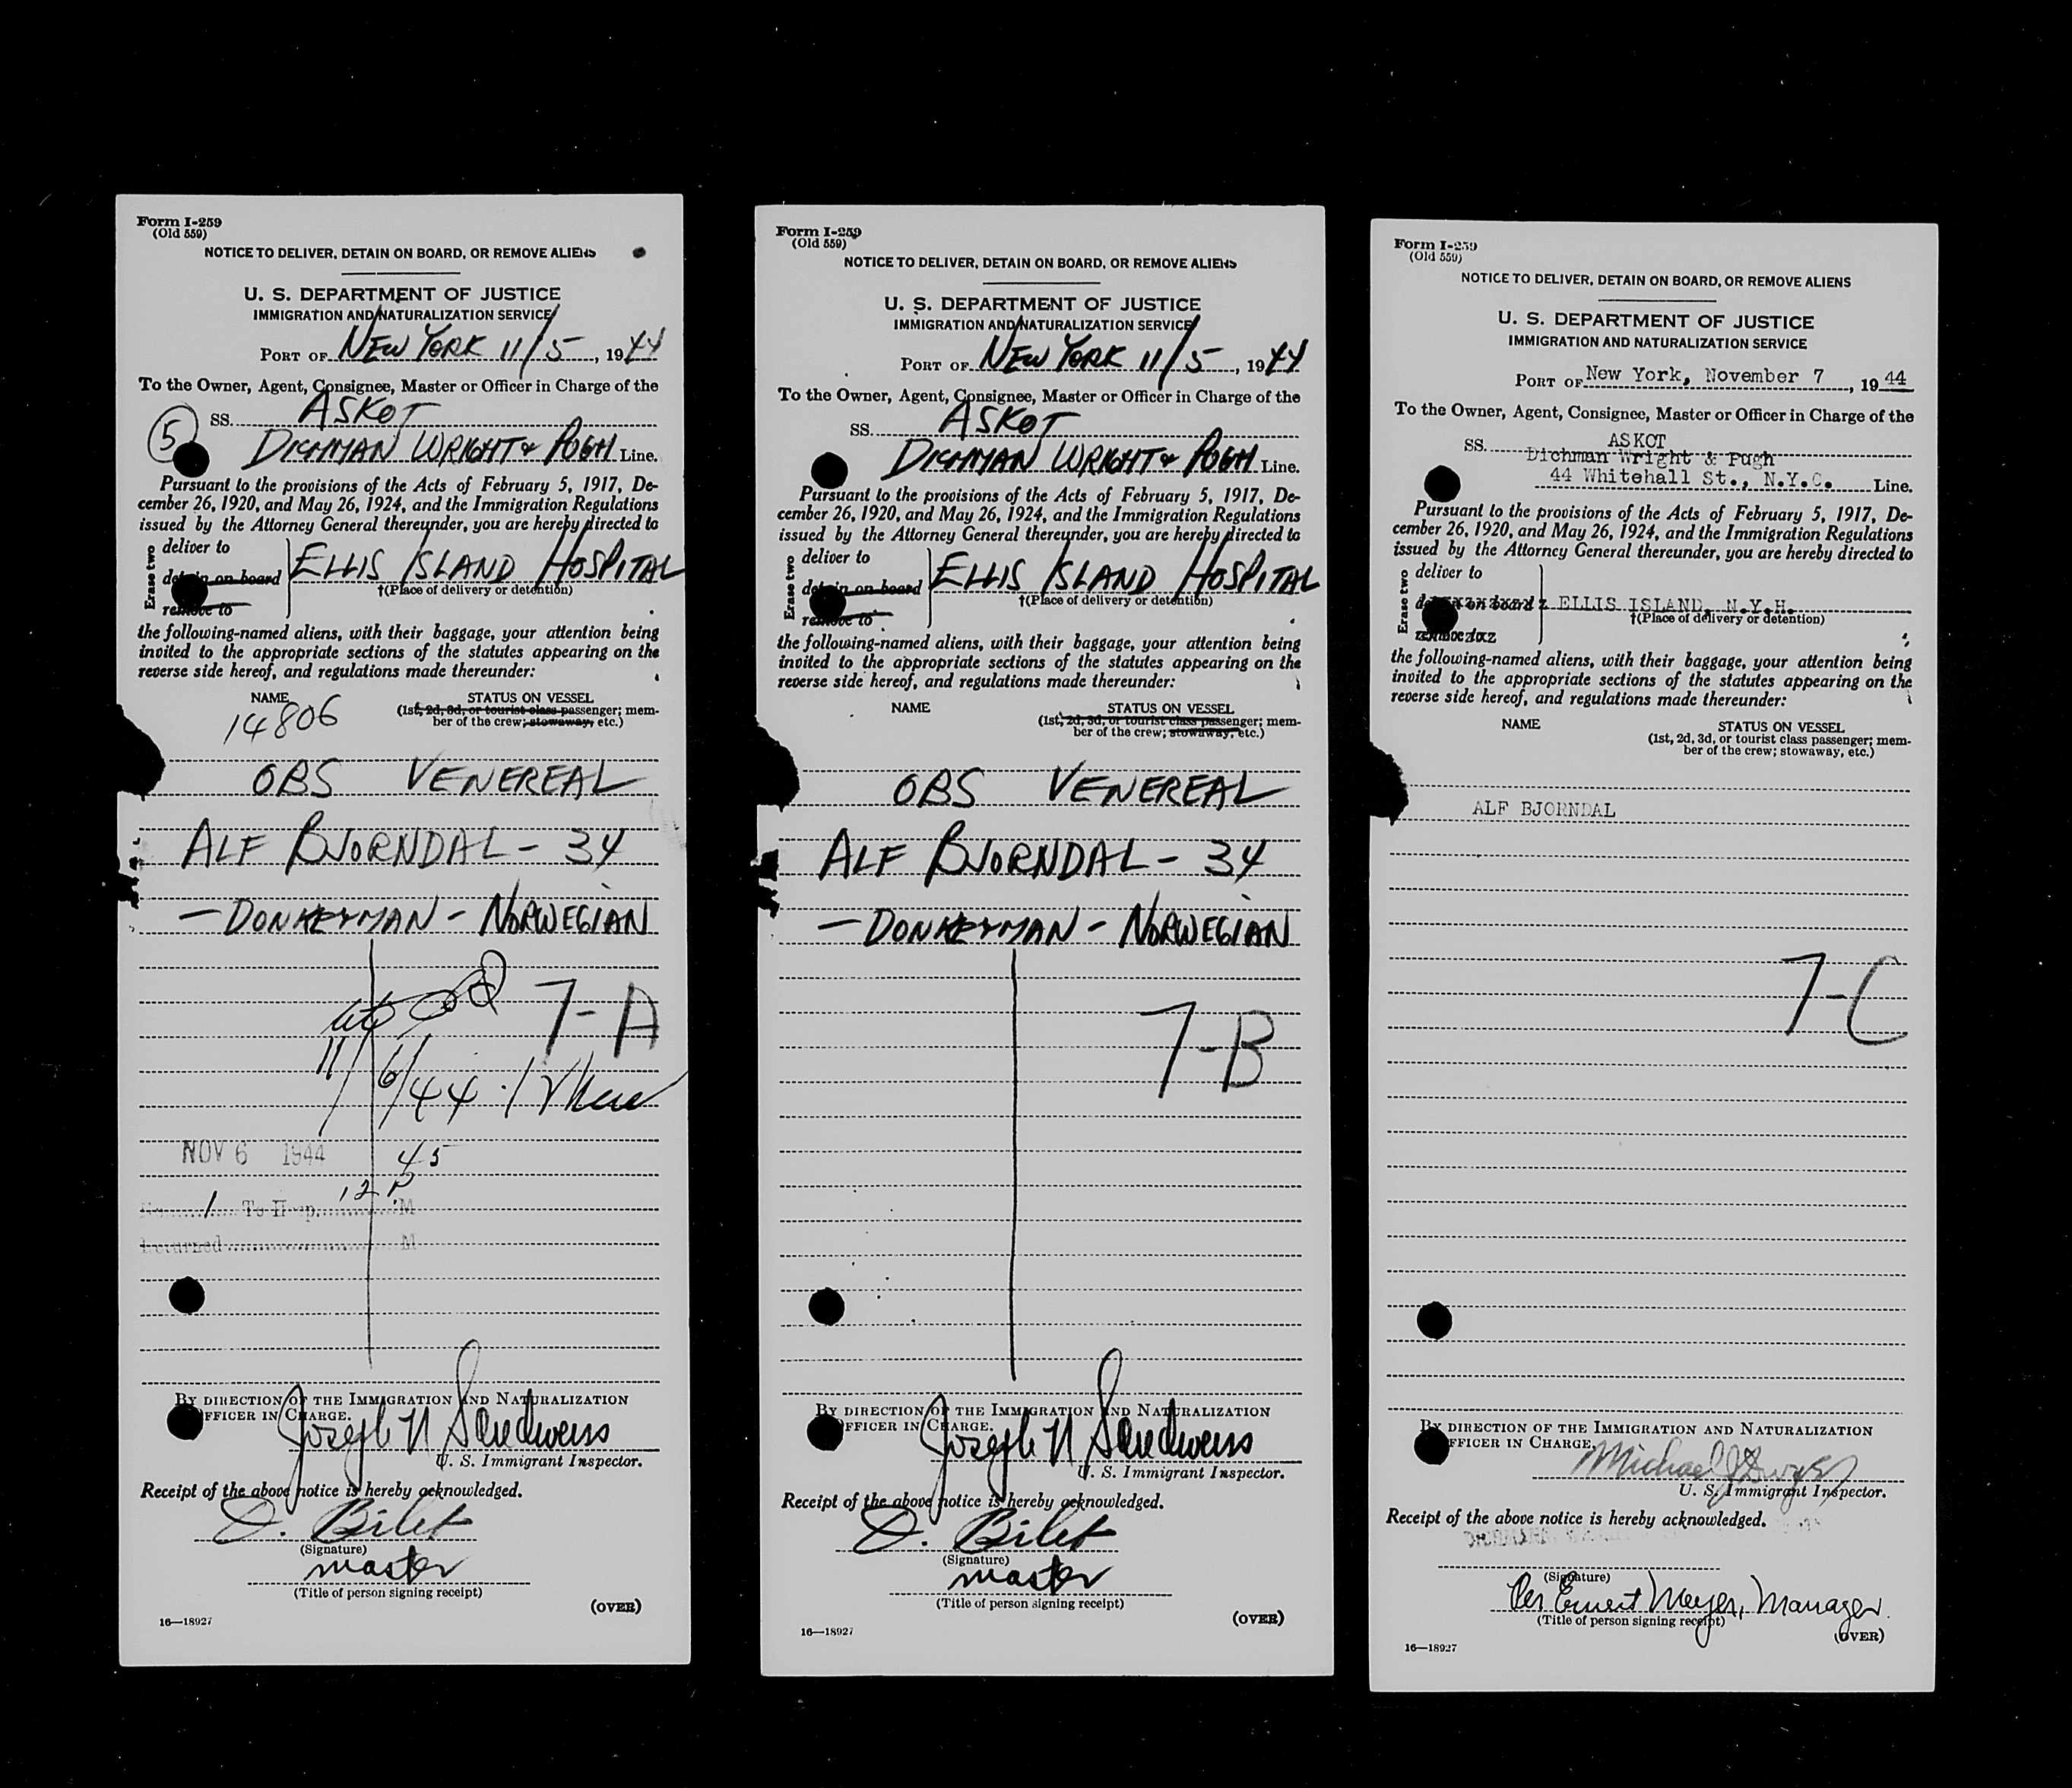 Form I-259
(Old 559)
NOTICE TO DELIVER, DETAIN ON BOARD, OR REMOVE ALIENS
U. S. DEPARTMENT OF JUSTICE
IMMIGRATION AND NATURALIZATION SERVICE
PORT OF NEW YORK 11/5, 1944
To the Owner, Agent, Consignee, Master or Officer in Charge of the
5 SS. ASKOT
DICHMAN WRIGHT & PUGH Line.
Pursuant to the provisions of the Acts of February 5, 1917, De-
cember 26, 1920, and May 26, 1924, and the Immigration Regulations
issued by the Attorney General thereunder, you are hereby directed to
Erase two
deliver to
detain on board ELLIS ISLAND HOSPITAL
remove to †(Place of delivery or detention)
the following-named aliens, with their baggage, your attention being
invited to the appropriate sections of the statutes appearing on the
reverse side hereof, and regulations made thereunder:
NAME STATUS ON VESSEL
14806 (1st, 2d, 3d, or tourist class passenger; mem-
ber of the crew; stowaway, etc.)
OBS VENEREAL
ALF BJORNDAL - 34
- DONKEYMAN - NORWEGIAN
7-A
11/6/44
NOV 6 1944 45
No. 1 To Hosp. 12 P. M
Returned M
BY DIRECTION OF THE IMMIGRATION AND NATURALIZATION
OFFICER IN CHARGE.
Joseph N Sandweiss
U. S. Immigrant Inspector.
Receipt of the above notice is hereby acknowledged.
O. Bilet
(Signature)
master
(Title of person signing receipt)
(OVER)
16—18927
Form I-259
(Old 559)
NOTICE TO DELIVER, DETAIN ON BOARD, OR REMOVE ALIENS
U. S. DEPARTMENT OF JUSTICE
IMMIGRATION AND NATURALIZATION SERVICE
PORT OF NEW YORK 11/5, 1944
To the Owner, Agent, Consignee, Master or Officer in Charge of the
SS. ASKOT
DICHMAN WRIGHT & PUGH Line.
Pursuant to the provisions of the Acts of February 5, 1917, De-
cember 26, 1920, and May 26, 1924, and the Immigration Regulations
issued by the Attorney General thereunder, you are hereby directed to
Erase two
deliver to
detain on board ELLIS ISLAND HOSPITAL
remove to †(Place of delivery or detention)
the following-named aliens, with their baggage, your attention being
invited to the appropriate sections of the statutes appearing on the
reverse side hereof, and regulations made thereunder:
NAME STATUS ON VESSEL
(1st, 2d, 3d, or tourist class passenger; mem-
ber of the crew; stowaway, etc.)
OBS VENEREAL
ALF BJORNDAL - 34
- DONKEYMAN - NORWEGIAN
7-B
BY DIRECTION OF THE IMMIGRATION AND NATURALIZATION
OFFICER IN CHARGE.
Joseph N Sandweiss
U. S. Immigrant Inspector.
Receipt of the above notice is hereby acknowledged.
O. Bilet
(Signature)
master
(Title of person signing receipt)
(OVER)
16—18927
Form I-259
(Old 559)
NOTICE TO DELIVER, DETAIN ON BOARD, OR REMOVE ALIENS
U. S. DEPARTMENT OF JUSTICE
IMMIGRATION AND NATURALIZATION SERVICE
PORT OF New York, November 7, 1944
To the Owner, Agent, Consignee, Master or Officer in Charge of the
ASKOT
SS. Dichman Wright & Pugh
44 Whitehall St., N.Y.C. Line.
Pursuant to the provisions of the Acts of February 5, 1917, De-
cember 26, 1920, and May 26, 1924, and the Immigration Regulations
issued by the Attorney General thereunder, you are hereby directed to
Erase two
deliver to
detain on board ELLIS ISLAND, N.Y.H.
remove to †(Place of delivery or detention)
the following-named aliens, with their baggage, your attention being
invited to the appropriate sections of the statutes appearing on the
reverse side hereof, and regulations made thereunder:
NAME STATUS ON VESSEL
(1st, 2d, 3d, or tourist class passenger; mem-
ber of the crew; stowaway, etc.)
ALF BJORNDAL
7-C
BY DIRECTION OF THE IMMIGRATION AND NATURALIZATION
OFFICER IN CHARGE.
Michael J Dwyer
U. S. Immigrant Inspector.
Receipt of the above notice is hereby acknowledged.
(Signature)
Per Ernest Meyer, Manager.
(Title of person signing receipt)
(OVER)
16—18927